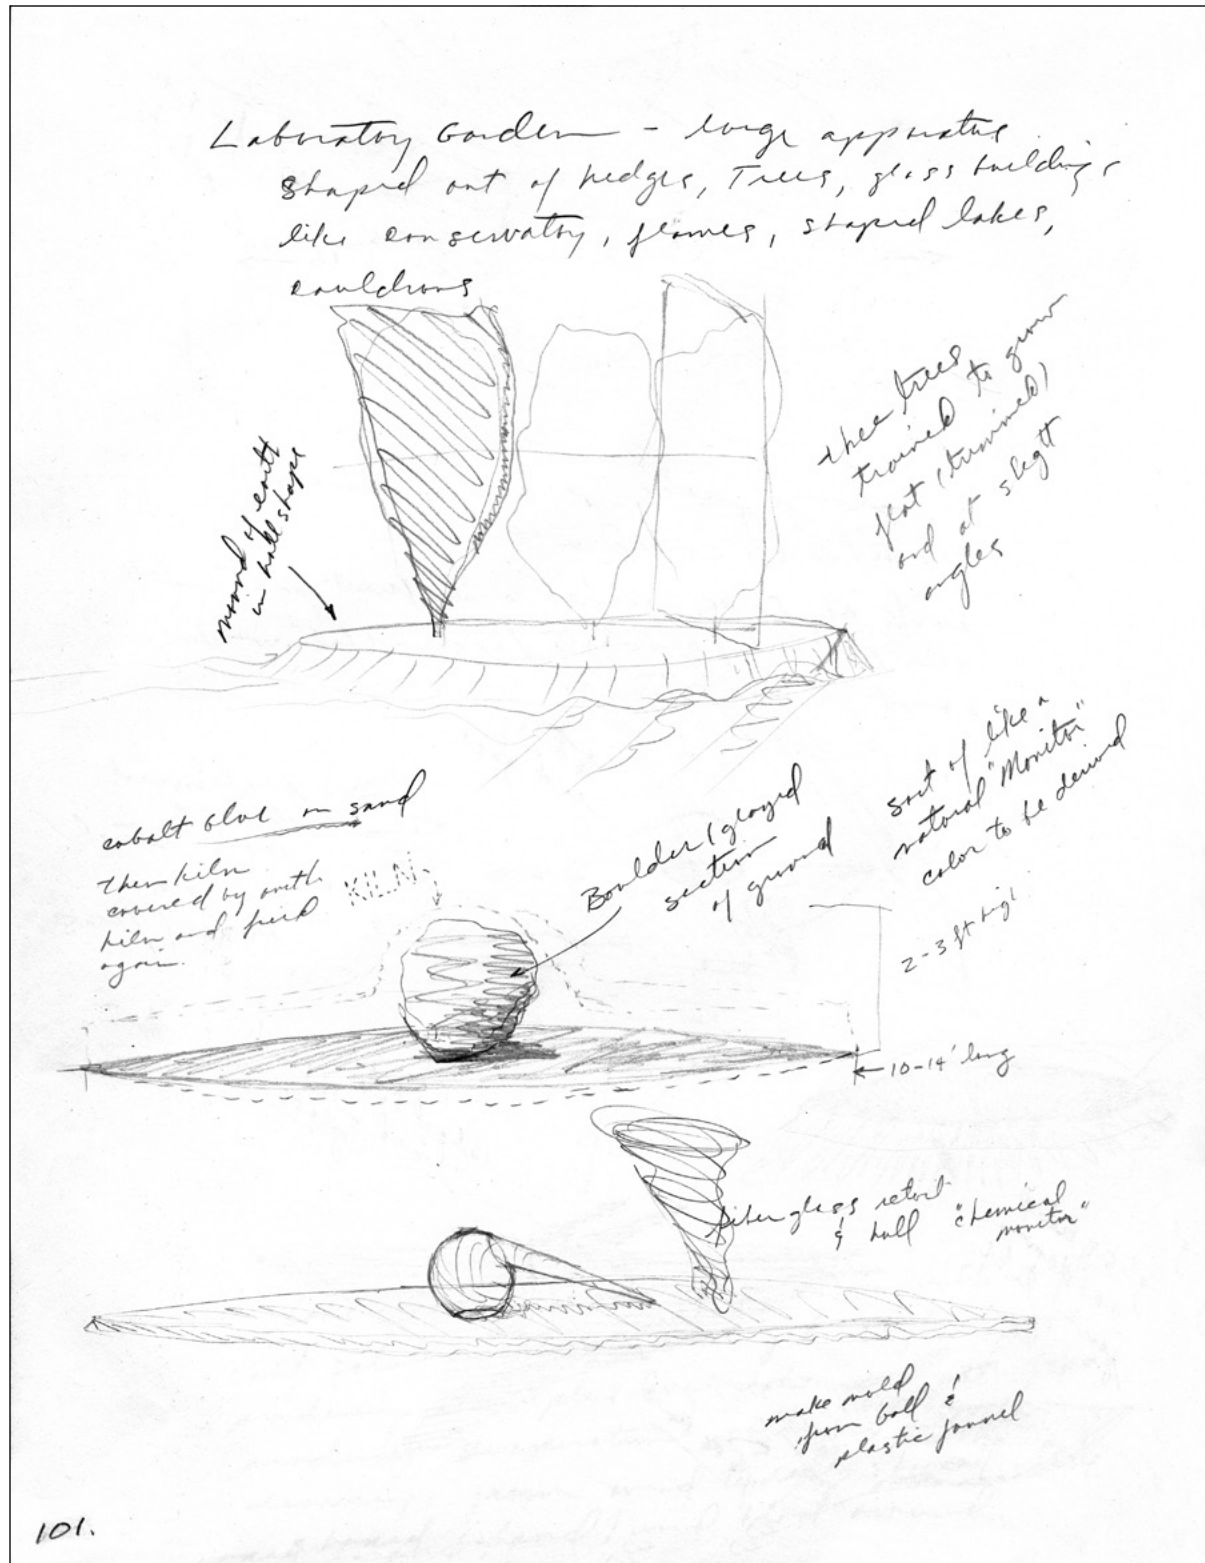 Laboratory Garden - large apparatus
shaped out of hedges, Trees, glass buildings
like conservatory, flames, shaped lakes,
cauldrons
thee trees
trained to grow
flat (trimmed)
and at slight
angles
mound of earth
in hull shape
cobalt blue on sand
then kiln
covered by
kiln and fired
again.
KILN
Boulder/glazed
section
of ground
sort of like a
natural "Monitor"
color to be derived
2-3 ft high
10-14' long
fiberglass retort
& hull "chemical
monitor"
make mold
from ball &
plastic funnel
101.